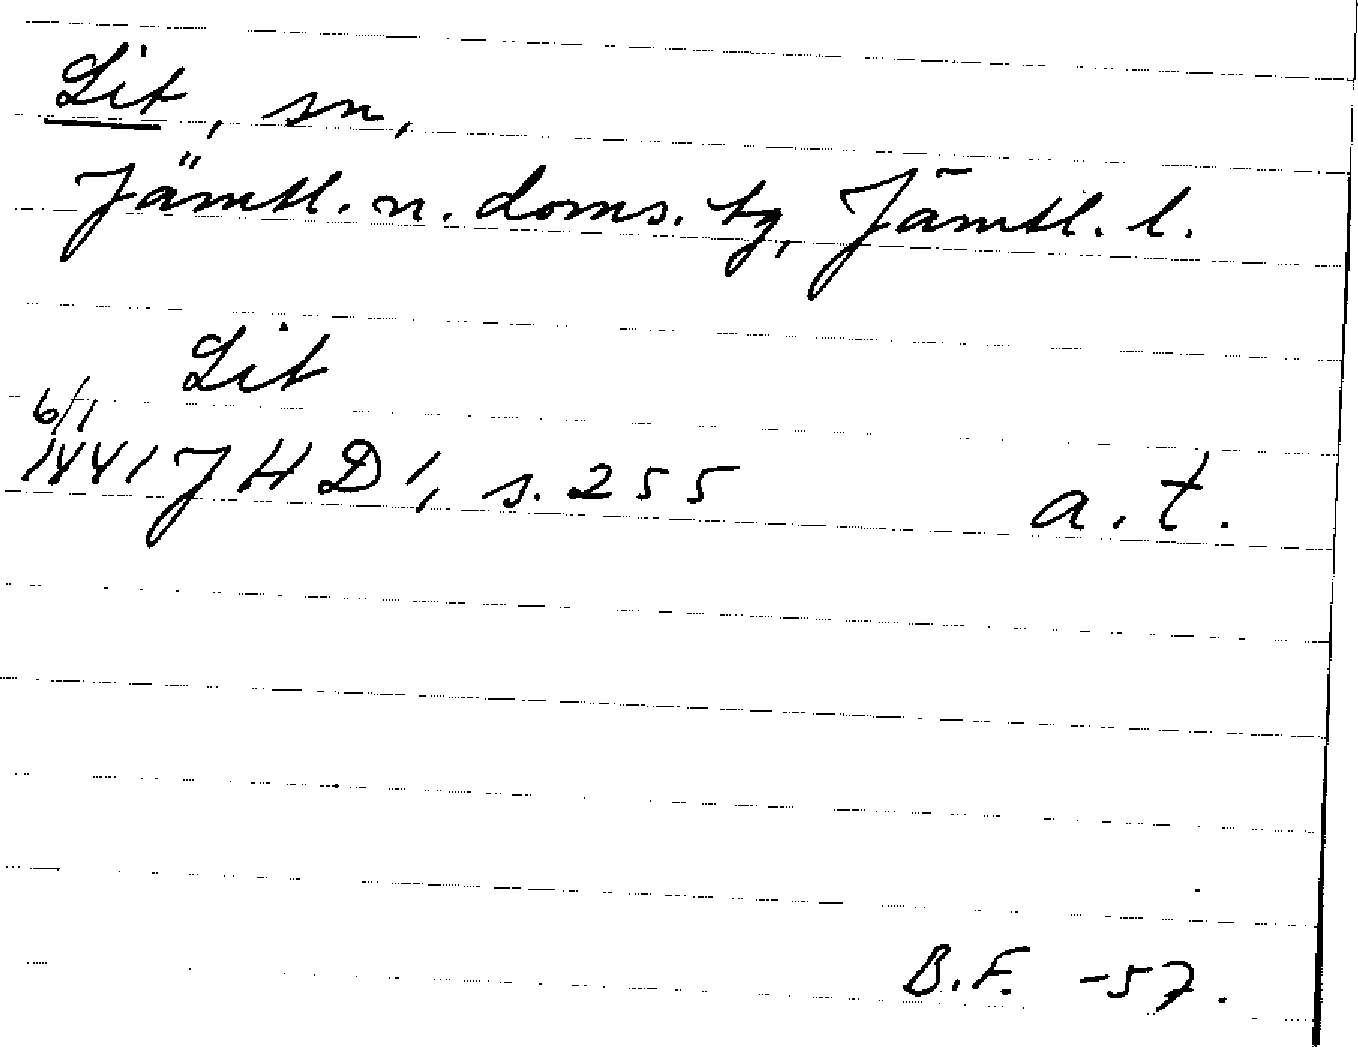 Lit, sn,
Jämtl. n. doms. tg, Jämtl. l.
Lit
6/1
1441 JHD 1, s. 255 a. t.
B.F. -57.